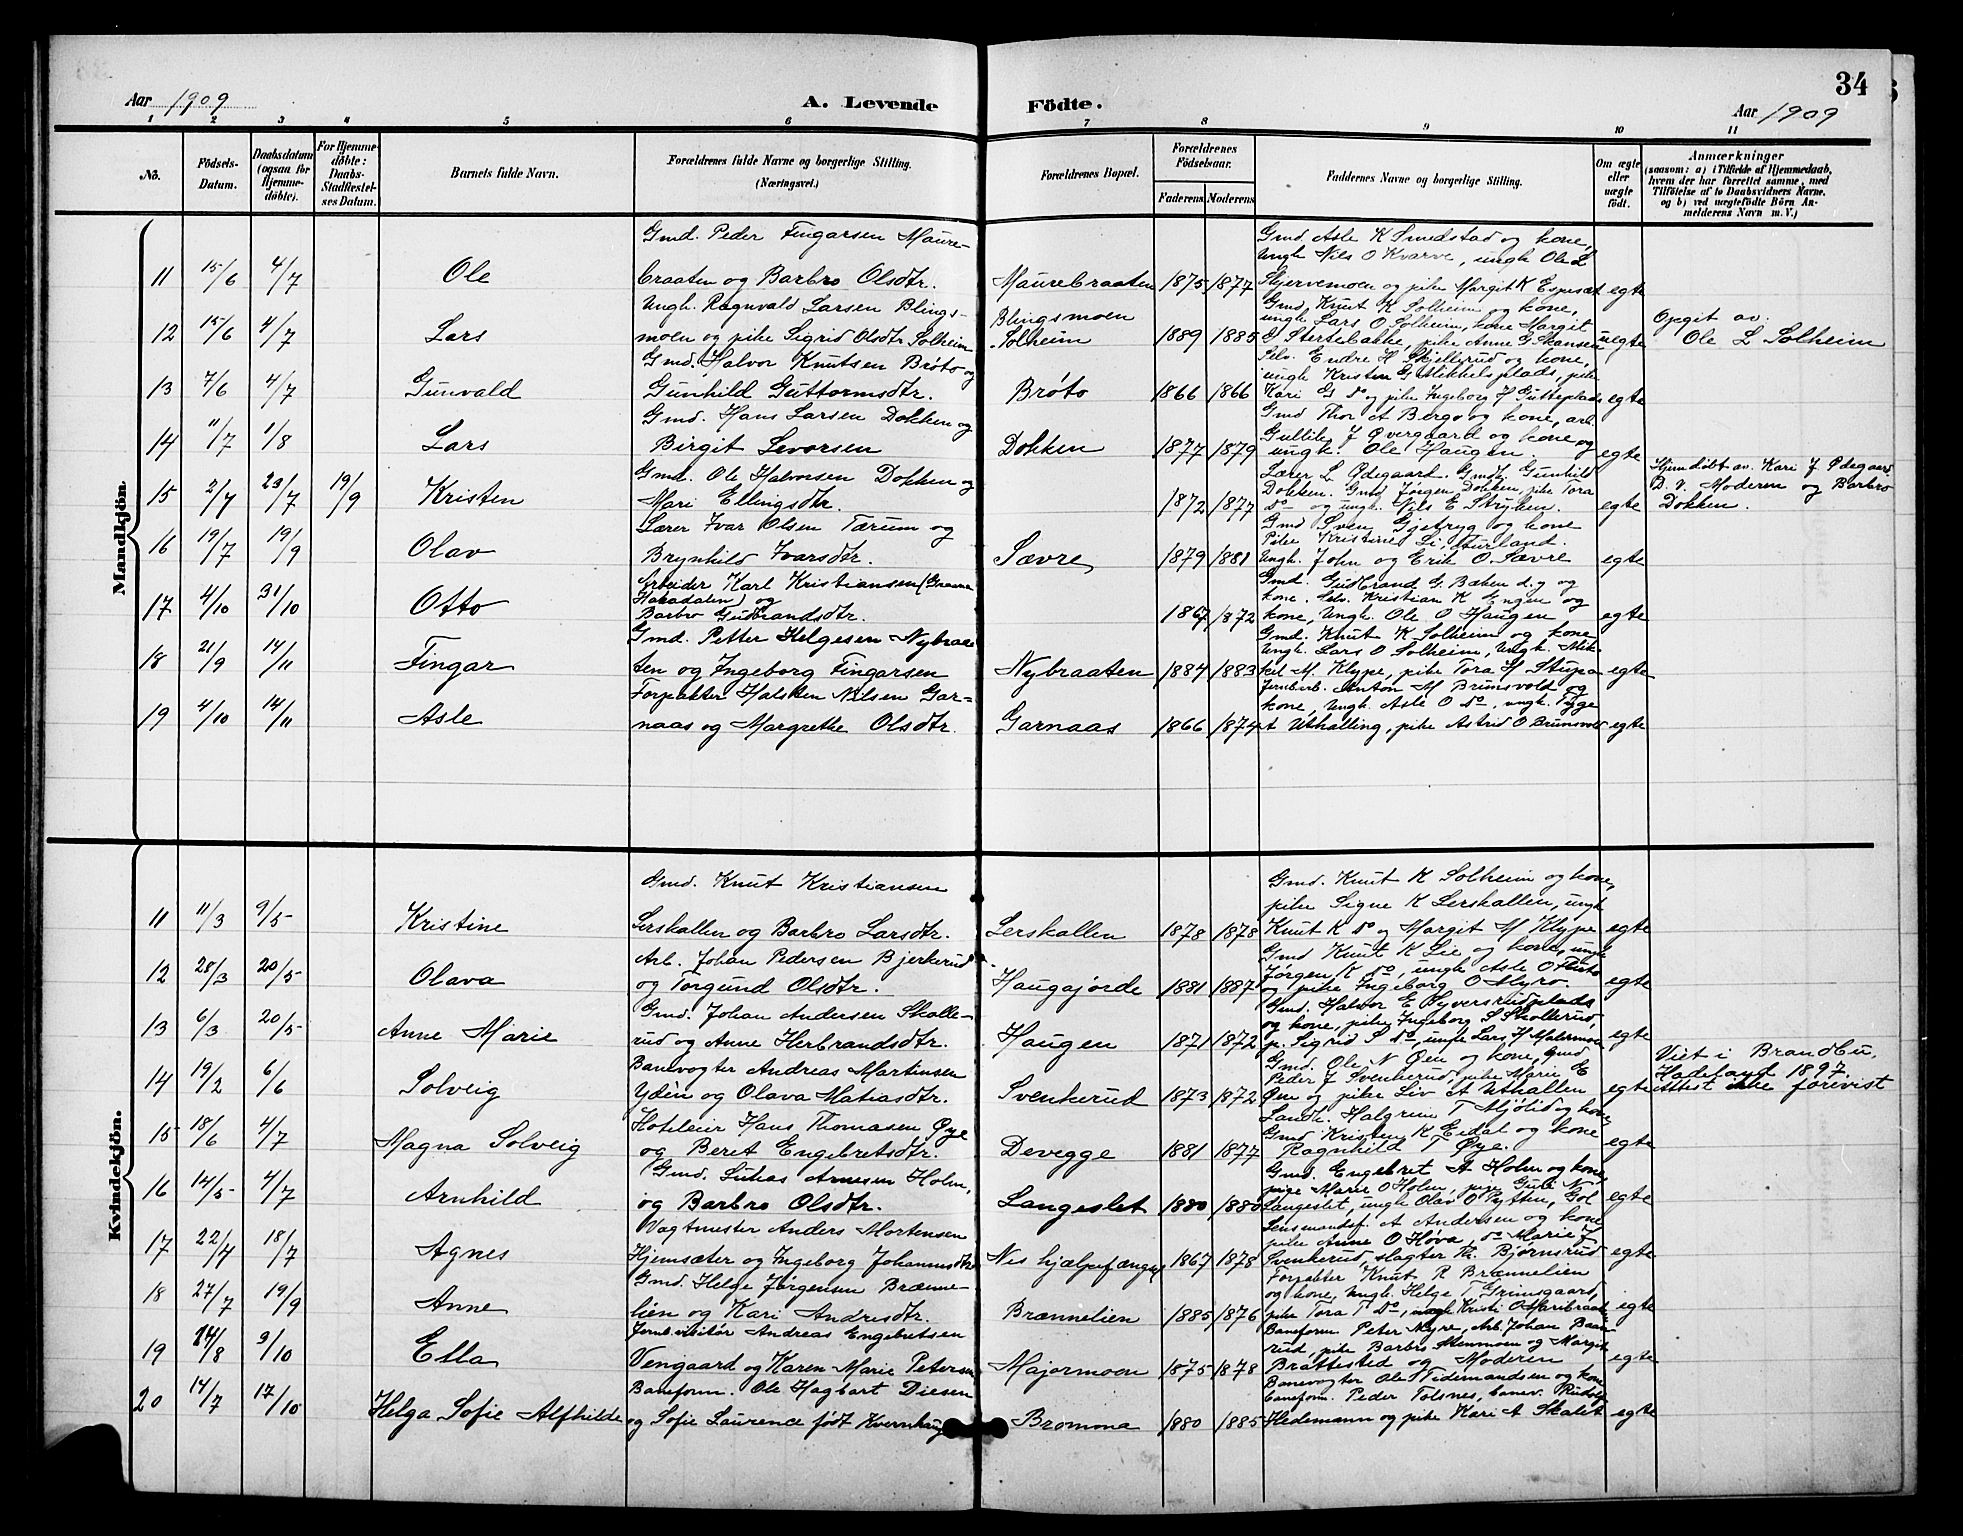 34
Aar 1909 A. Levende Födte. Aar 1909
1 2 3 4 5 6 7 8 9 10 11
No. Födsels-Datum. Daabsdatum (ogsaa for Hjemme-döbte). For Hjemme-döbte: Daabs-Stadfæstel-ses Datum. Barnets fulde Navn. Forældrenes fulde Navne og borgerlige Stilling. (Næringsvei.) Forældrenes Bopæl. Forældrenes Födselsaar. Faderens Moderens Faddernes Navne og borgerlige Stilling. Om ægte eller uægte födt. Anmærkninger (saasom: a) i Tilfælde af Hjemmedaab, hvem der har forrettet samme, med Tilföielse af to Daabsvidners Navne, og b) ved uægtefödte Börn An-melderens Navn m. V.)
Mandkjön.
Gmd. Peder Fingarsen Maure- Gmd Asle K Smedstad og kone,
Ungk Nils O Kvarve, ungk Ole L
11 15/6 4/7 Ole braaten og Barbro Olsdtr. Maurebraaten 1875 1877 Skjervemoen og pike Margit K Espeset egte
Ungk. Ragnvald Larsen Blings- Blingsmoen Gmd Knut K Solheim og kone,
ungk Lars O Solheim, kone Margit Opgit av.
12 15/6 4/7 Lars moen og pike Sigrid Olsdtr. Solheim Solheim 1889 1885 Stertebakke, pike Anne G Skansen uegte Ole L Solheim
Gmd. Halvor Knutsen Brøto og Selv. Endre H Skjellerud og kone,
ungk Kristen G Mikkelsplads, pike
13 7/6 4/7 Gunvald Gunhild Guttormsdtr. Brøto 1866 1866 Kari G do og pike Ingeborg H Gutteplads egte
Gmd. Hans Larsen Dokken og Gmd Thor A Bergo og kone, arb.
Gullik J Øvergaard og kone og
14 11/7 1/8 Lars Birgit Levorsen Dokken 1877 1879 ungk. Ole Haugen. egte
Gmd. Ole Halvorsen Dokken og Lærer L Ødegaard. Gmdk. Gunhild Hjemdøbt av. Kari J Ødegaard
Dokken. Gmd Jørgen Dokken, pike Tora D. v. Moderen og Barbro
15 2/7 23/7 19/9 Kristen Mari Ellingsdtr. 1872 1877 do og ungk. Nils E Stryken. egte Dokken.
Lærer Ivar Olsen Tærum og Gmd Sven Gjetryg og kone
Pike Kristine Li, Aurland.
16 19/7 19/9 Olav Brynhild Ivarsdtr. Sævre 1879 1881 Ungk. John og Erik O. Sævre egte
Arbeider Karl Kristiansen (Graane Gmd. Gudbrand G. Bæken d.y og
Hakadalen) og kone. Selv. Kristian K Engen og
17 4/10 31/10 Otto Barbro Gudbrandsdtr. 1867 1872 kone, Ungk. Ole O Haugen egte
Gmd. Petter Helgesen Nybraa- Gmd. Knut K Solheim og kone
Ungk. Lars O Solheim, Ungk. Mik-
18 21/9 14/11 Fingar ten og Ingeborg Fingarsen Nybraaten 1884 1883 kel M. Klype, pike Tora H Stupa egte
Forpakter Halsten Nilsen Gar- Jernbarb. Anton M Brunsvold og
kone, Ungk. Asle O do, ungk. Tygge
19 4/10 14/11 Asle naas og Margrethe Olsdtr. Garnaas 1866 1874 t Uthalling, pike Astrid O Brunsvold egte
Kvindekjön.
Gmd. Knut Kristiansen Gmd. Knut K Solheim og kone,
pike Signe K Lerskallen, ungk
11 11/3 9/5 Kristine Lerskallen og Barbro Larsdtr. Lerskallen 1878 1878 Knut K do og Margit M Klype egte
Arb. Johan Pedersen Bjerkerud Gmd Knut K Lie og kone, ungk
Jørgen K do, ungk Asle O
12 28/3 20/5 Olava og Torgund Olsdtr. Haugajorde 1881 1887 og pike Ingeborg O Myro. egte
Gmd. Johan Andersen Skolle- Gmd. Halvor E Syversrudplads
og kone, pike Ingeborg S Skollerud,
13 6/3 20/5 Anne Marie rud og Anne Herbrandsdtr. Haugen 1871 1872 p. Sigrid S do, ungk Lars H Malermoen egte
Banevogter Andreas Martinsen Gmd. Ole N Øen og kone, Gmd. Viet i Brandbu.
Peder J Svenkerud, pike Marie E Hadeland 1897.
14 19/2 6/6 Solveig Ydén og Olava Matiasdtr. Svenkerud 1873 1872 Øen og pike Liv A Uthallen egte Attest ikke forevist
Hoteleier Hans Thomasen Øye Landh. Halgrim T Mjølid og kone,
Gmd Kristen K Eidal og kone
15 18/6 4/7 Magna Solveig og Beret Engebretsdtr. Devegge 1881 1877 Ragnhild T Øye. egte
Gmd. Lukas Arnesen Holm, Gmd. Engebret A Holm og kone,
pige Marie O Holm, pige Guri N
16 14/5 4/7 Arnhild og Barbro Olsdtr. Langeslet 1880 1880 Langeslet, ungk Olav O Pytten, Gol egte
Vagtmester Anders Mortensen Lensmandsf. A Andersen og kone
pike Anne O Hova, do Marie J
17 22/4 18/7 Agnes Hjemsæter og Ingeborg Johannsdtr Nes hjælpefængsel 1867 1878 Svenkerud, slagter K. Bjørnsrud egte
Gmd. Helge Jørgensen Brænne- Forpakter Knut R Brænnelien
og kone, Ungk. Helge T Grimsgaard,
18 27/7 19/9 Anne lien og Kari Andrisdtr. Brænnelien 1885 1876 pike Tora T do, ungk Kristi O Maribraat. egte
Jernb.visitør Andreas Engebretsen Baneform. Peter Myre, Arb. Johan Baan-
rud, pike Barbro Stenmoen og Margit
19 14/8 9/10 Ella Vengaard og Karen Marie Petersen Majormoen 1875 1878 Brattested og Moderen egte
Baneform. Ole Hagbart Diesen Banevogter Ole Tidemandsen og kone
baneform. Peder Tolsnes, banev. Rudolf
20 14/7 17/10 Helga Sofie Alfhilde og Sofie Laurence født Kvernhaug Bromma 1880 1885 Hedemann og pike Kari A Skalet egte